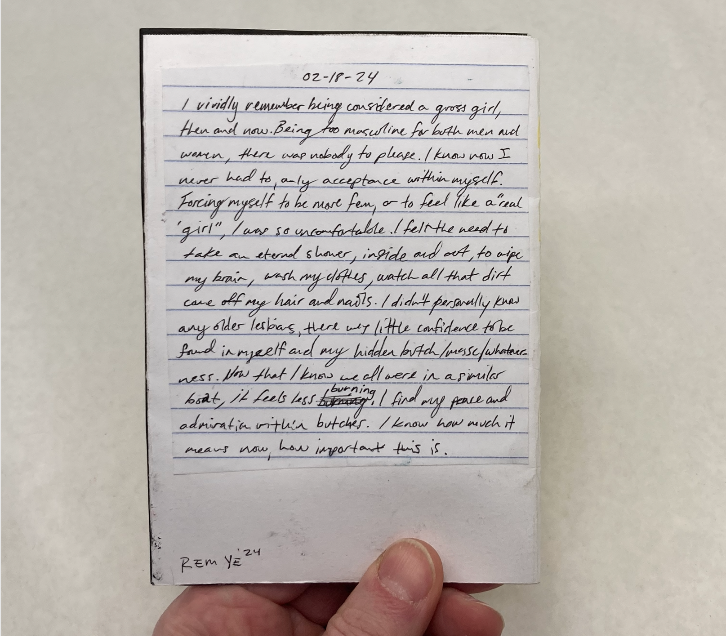 02-18-24
I vividly remember being considered a gross girl,
then and now. Being too masculine for both men and
women, there was nobody to please. I know now I
never had to, only acceptance within myself.
Forcing myself to be more fem, or to feel like a "real
"girl", I was so uncomfortable. I felt the need to
take an eternal shower, inside and out, to wipe
my brain, wash my clothes, watch all that dirt
come off my hair and nails. I didn't personally know
any older lesbians, there was little confidence to be
found in myself and my hidden butch/masc/whatever-
ness. Now that I know we all were in a similar
boat, it feels less burning. I find my peace and
admiration within butches. I know how much it
means now, how important this is.
REM YE '24